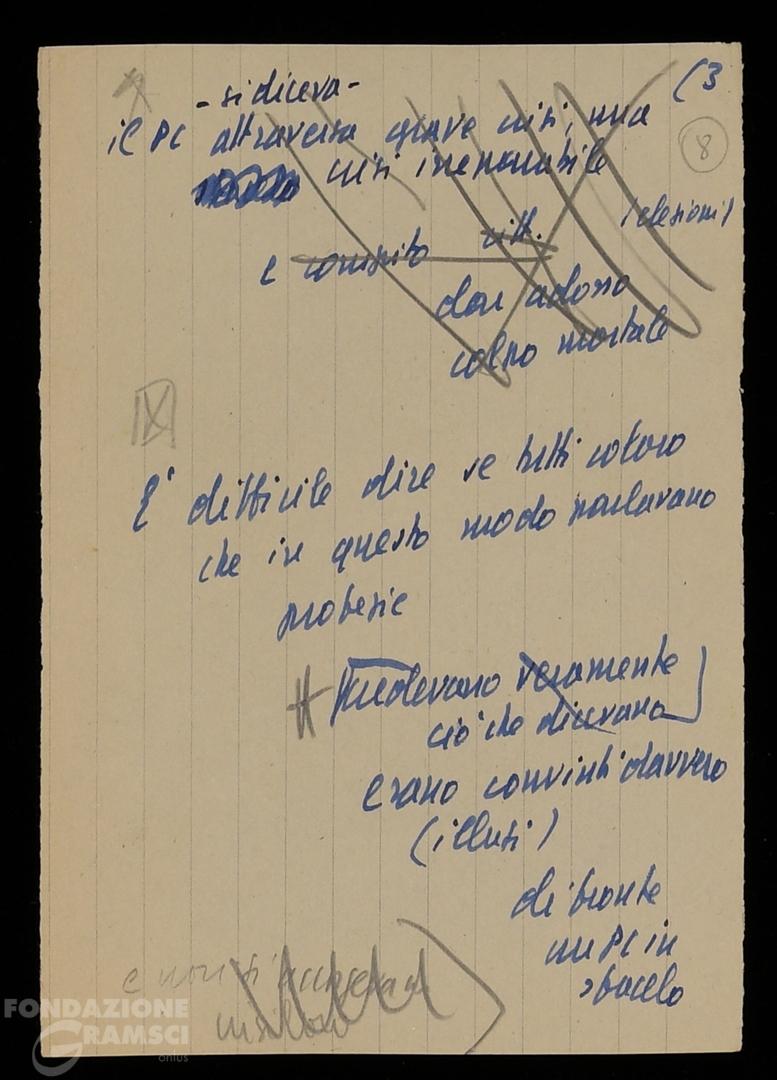 (3
- si diceva -
il PC attraversa grave crisi, una
8
crisi inesorabile
(elezioni)
e compito vitt.
dare adosso
colpo mortale
IV
E' difficile dire se tutti coloro
che in questo modo parlavano
profezie
credevano veramente
ciò che dicevano
erano convinti davvero
(illusi)
di fronte
un PC in
sfacelo
e non si
FONDAZIONE
GRAMSCI
onlus